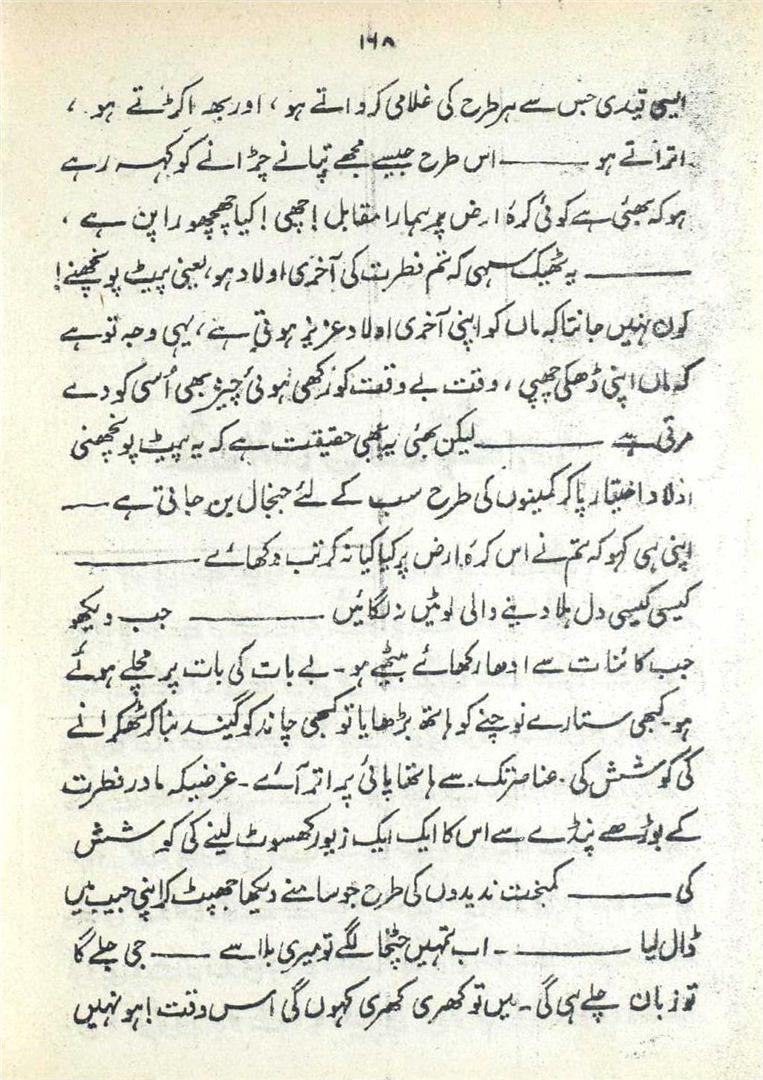 ۱۶۸
ایسی قیدی جس سے ہر طرح کی غلامی کرواتے ہو ، اور پھر اکڑتے ہو ،
اتراتے ہو ——— اس طرح جیسے مجھے تپانے چڑانے کو کہہ رہے
ہو کہ بھئی ہے کوئی کرۂ ارض پر ہمارا مقابل ! چھی ! کیا چھچھوراپن ہے ،
——— یہ ٹھیک سہی کہ تم فطرت کی آخری اولاد ہو، یعنی پیٹ پونچھنے !
کون نہیں جانتا کہ ماں کو اپنی آخری اولاد عزیز ہوتی ہے ، یہی وجہ تو ہے
کہ ماں اپنی ڈھکی چھپی ، وقت بے وقت کو رکھی ہوئی چیز بھی اُسی کو دے
مرتی ہے ——— لیکن بھئی یہ بھی حقیقت ہے کہ یہ پیٹ پونچھنی
اولاد اختیار پا کر کمینوں کی طرح سب کے لئے جنجال بن جاتی ہے ——
اپنی ہی کہو کہ تم نے اس کرۂ ارض پر کیا کیا نہ کرتب دکھائے ———
کیسی کیسی دل ہلا دینے والی لوٹیں نہ لگائیں ——— جب دیکھو
جب کائنات سے ادھار کھائے بیٹھے ہو ۔ بے بات کی بات پر مچلے ہوئے
ہو ۔ کبھی ستارے نوچنے کو ہاتھ بڑھایا تو کبھی چاند کو گیند بنا کر ٹھکرانے
کی کوشش کی ۔ عناصر تک سے ہاتھا پائی پر اتر آئے ۔ غرضیکہ مادر فطرت
کے بوڑھے پنڈے سے اس کا ایک ایک زیور کھسوٹ لینے کی کوشش
کی ——— کمبخت ندیدوں کی طرح جو سامنے دیکھا جھپٹ کر اپنی جیب میں
ڈال لیا ——— ۔ اب تمہیں چٹخا لگے تو میری بلا سے —— جی جلے گا
تو زبان چلے ہی گی ۔ میں تو کھری کھری کہوں گی اس وقت ! ہو نہیں